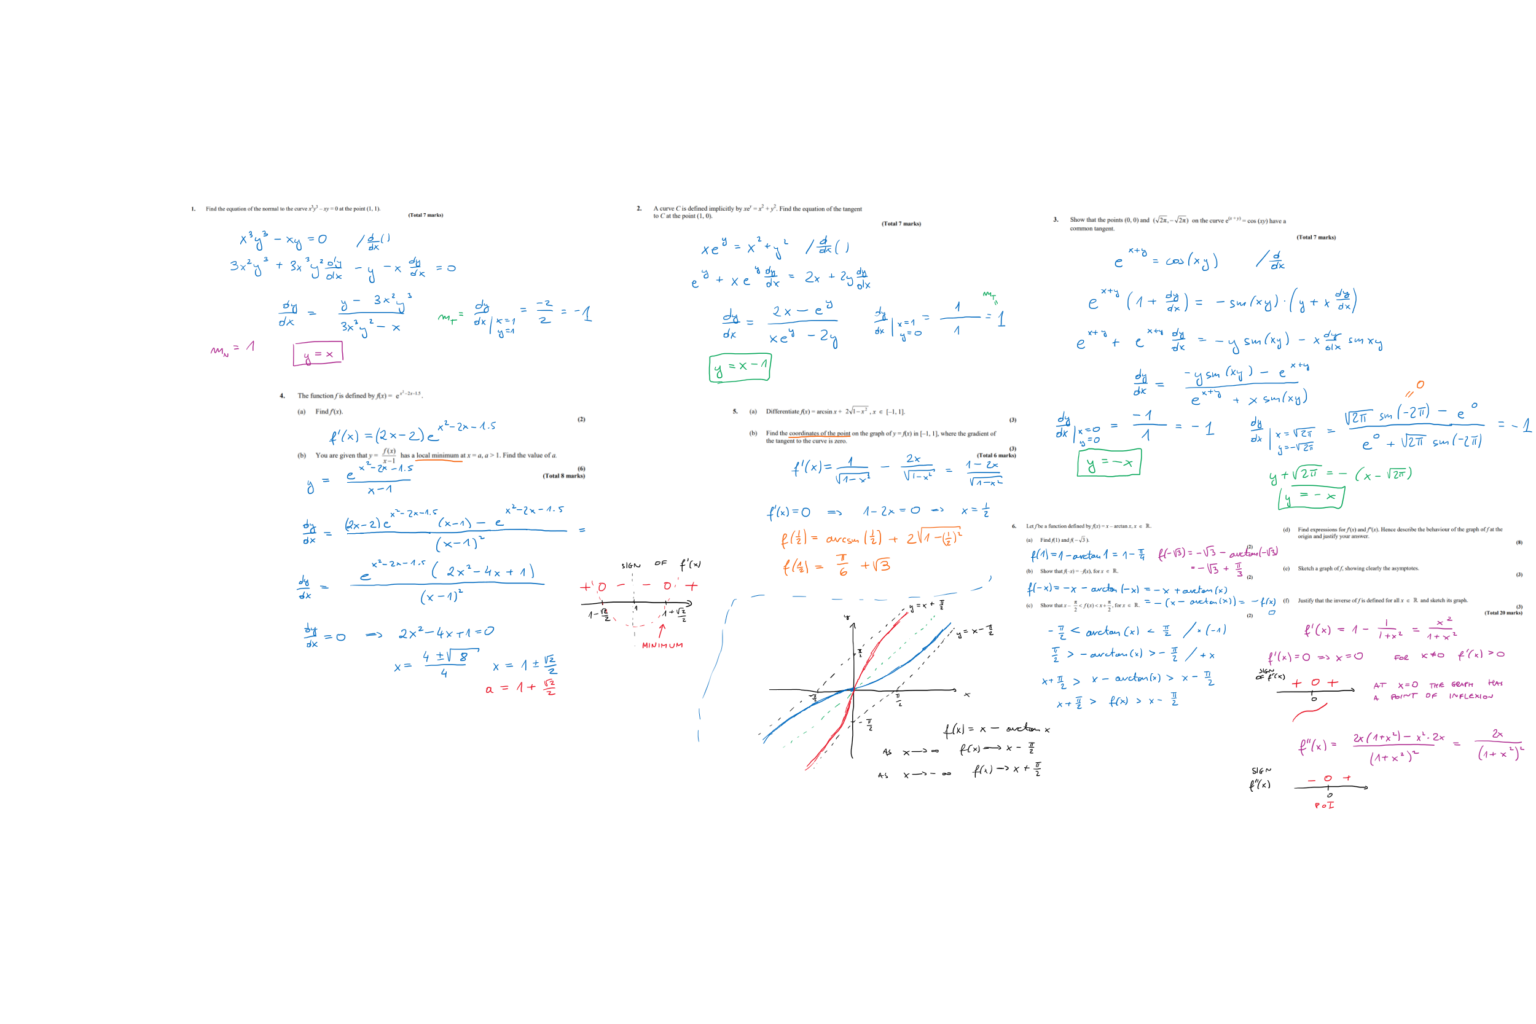 1. Find the equation of the normal to the curve x³y³ – xy = 0 at the point (1, 1).
(Total 7 marks)
x³y³ - xy = 0 / d/dx ( )
3x²y³ + 3x³y² dy/dx - y - x dy/dx = 0
dy/dx = (y - 3x²y³)/(3x³y² - x)
m_T = dy/dx | x=1 y=1 = -2/2 = -1
m_N = 1
y = x
2. A curve C is defined implicitly by xe^y = x² + y². Find the equation of the tangent
to C at the point (1, 0).
(Total 7 marks)
xe^y = x² + y² / d/dx ( )
e^y + xe^y dy/dx = 2x + 2y dy/dx
dy/dx = (2x - e^y)/(xe^y - 2y)
dy/dx | x=1 y=0 = 1/1 = 1
m_T
y = x - 1
3. Show that the points (0, 0) and (√2π, –√2π) on the curve e^(x + y) = cos (xy) have a
common tangent.
(Total 7 marks)
e^x+y = cos(xy) / d/dx
e^x+y (1 + dy/dx) = -sin(xy)·(y + x dy/dx)
e^x+y + e^x+y dy/dx = -y sin(xy) - x dy/dx sin xy
dy/dx = (-y sin(xy) - e^x+y)/(e^x+y + x sin(xy))
dy/dx | x=0 y=0 = -1/1 = -1
y = -x
= 0
dy/dx | x=√2π y=-√2π = (√2π sin(-2π) - e⁰)/(e⁰ + √2π sin(-2π)) = -1
y + √2π = - (x - √2π)
y = - x
4. The function f is defined by f(x) = e^x²–2x–1.5.
(a) Find f′(x).
(2)
f'(x) = (2x-2)e^x²-2x-1.5
(b) You are given that y = f(x)/(x–1) has a local minimum at x = a, a > 1. Find the value of a.
(6)
(Total 8 marks)
y = e^x²-2x-1.5/(x-1)
dy/dx = ((2x-2)e^x²-2x-1.5 (x-1) - e^x²-2x-1.5)/(x-1)² =
dy/dx = e^x²-2x-1.5 (2x²-4x+1)/(x-1)²
dy/dx = 0 => 2x²-4x+1=0
x = (4±√8)/4 x = 1 ± √2/2
a = 1 + √2/2
SIGN OF f'(x)
+ 0 - - 0 +
1-√2/2 1 1+√2/2
MINIMUM
5. (a) Differentiate f(x) = arcsin x + 2√1–x², x ∈ [–1, 1].
(3)
(b) Find the coordinates of the point on the graph of y = f(x) in [–1, 1], where the gradient of
the tangent to the curve is zero.
(3)
(Total 6 marks)
f'(x) = 1/√1-x² - 2x/√1-x² = (1-2x)/√1-x²
f'(x)=0 => 1-2x=0 => x=1/2
f(1/2) = arcsin(1/2) + 2√1-(1/2)²
f(1/2) = π/6 + √3
y
y = x + π/2
y = x - π/2
π/2
-π/2
π/2
-π/2
x
f(x) = x - arctan x
As x → ∞ f(x) → x - π/2
As x → -∞ f(x) → x + π/2
6. Let f be a function defined by f(x) = x – arctan x, x ∈ ℝ.
(a) Find f(1) and f(–√3).
(2)
f(1) = 1 - arctan 1 = 1 - π/4 f(-√3) = -√3 - arctan(-√3)
= -√3 + π/3
(b) Show that f(–x) = –f(x), for x ∈ ℝ.
(2)
f(-x) = -x - arctan(-x) = -x + arctan(x)
= -(x - arctan(x)) = -f(x)
(c) Show that x – π/2 < f(x) < x + π/2, for x ∈ ℝ.
(2)
-π/2 < arctan(x) < π/2 / ×(-1)
π/2 > -arctan(x) > -π/2 / +x
x+π/2 > x - arctan(x) > x - π/2
x+π/2 > f(x) > x - π/2
(d) Find expressions for f′(x) and f″(x). Hence describe the behaviour of the graph of f at the
origin and justify your answer.
(8)
(e) Sketch a graph of f, showing clearly the asymptotes.
(3)
(f) Justify that the inverse of f is defined for all x ∈ ℝ and sketch its graph.
(3)
(Total 20 marks)
f'(x) = 1 - 1/(1+x²) = x²/(1+x²)
f'(x)=0 => x=0 FOR x≠0 f'(x)>0
SIGN OF f'(x)
+ 0 +
0
AT x=0 THE GRAPH HAS
A POINT OF INFLEXION
f"(x) = (2x(1+x²) - x²·2x)/(1+x²)² = 2x/(1+x²)²
SIGN
f"(x)
- 0 +
0
PoI